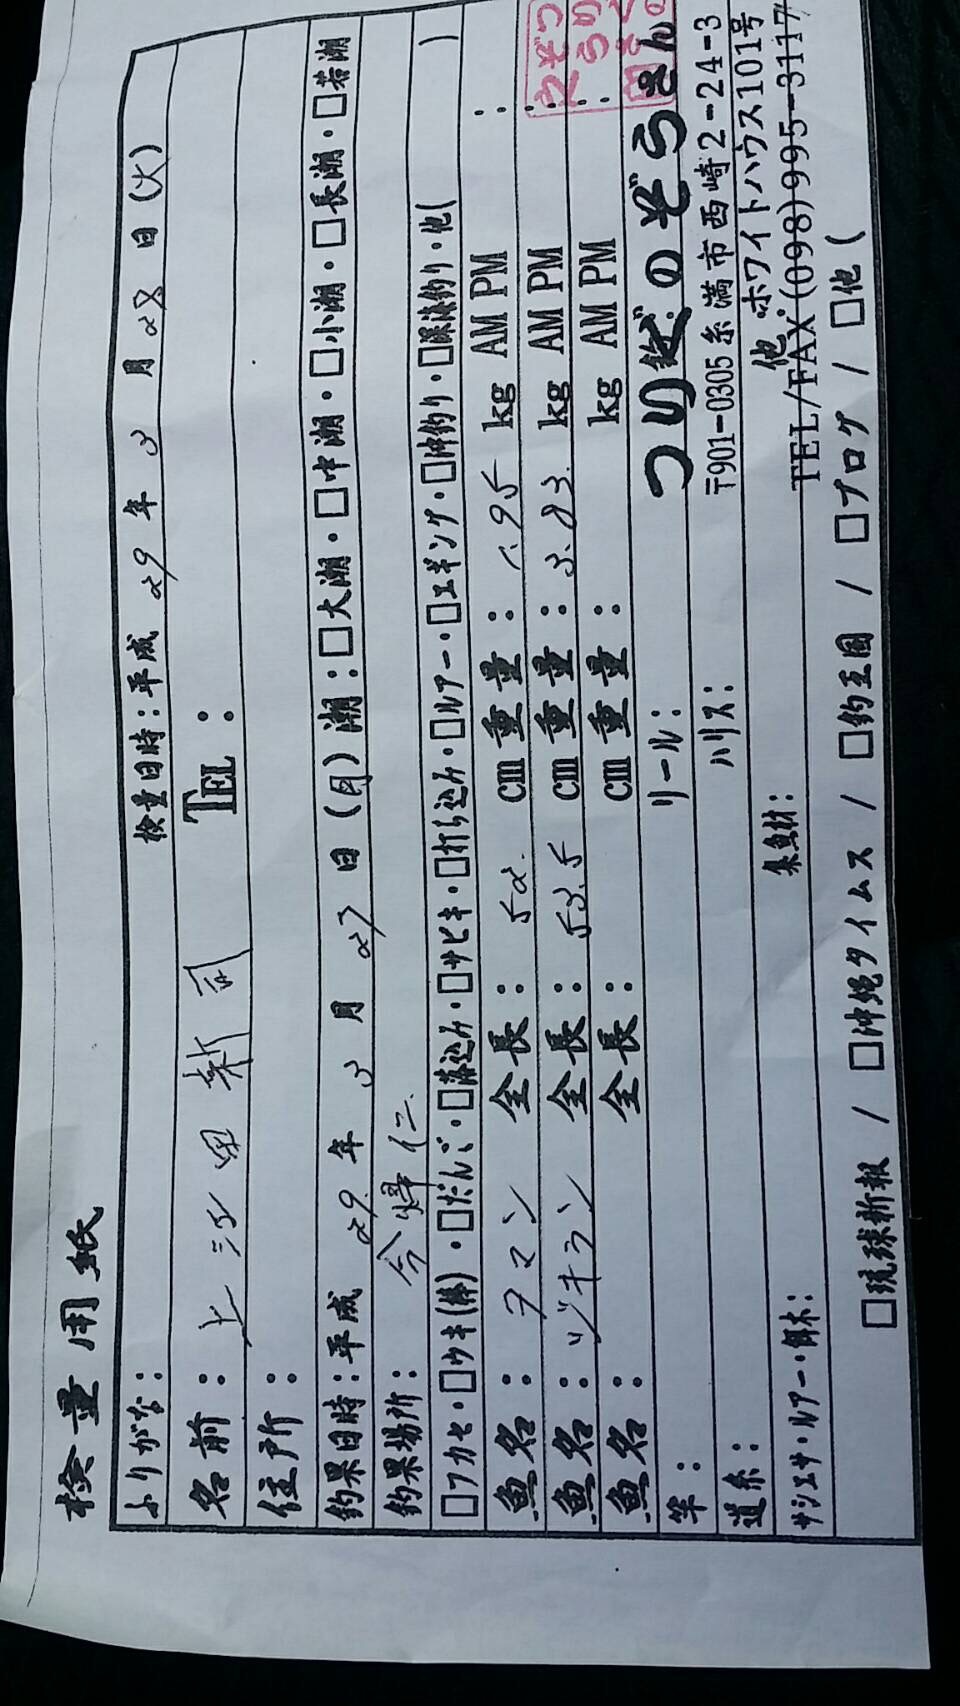 検量用紙
ふりがな： 検量日時：平成 29 年 3 月 28 日(火)
名前： 上江田 新司 TEL：
住所：
釣果日時：平成 29 年 3 月 27 日(月)潮：□大潮・□中潮・□小潮・□長潮・□若潮
釣果場所： 今帰仁
□フカセ・□ウキ(棒)・□だんご・□落込み・□サビキ・□打ち込み・□ルアー・□エギング・□沖釣り・□深海釣り・他( )
魚名： タマン 全長： 52 cm 重量： 1.95 kg AM PM ：
魚名： ジキラン 全長： 53.5 cm 重量： 3.83 kg AM PM ：
魚名： 全長： cm 重量： kg AM PM ：
竿： リール：
つり姿のぞらさん
道糸： ハリス：
〒901-0305 糸満市西崎2-24-3
他 ホワイトハウス101号
サシエサ・ルアー・餌木： 集魚材：
TEL/FAX (098)995-3117
□琉球新報 / □沖縄タイムス / □釣王国 / □ブログ / □他(